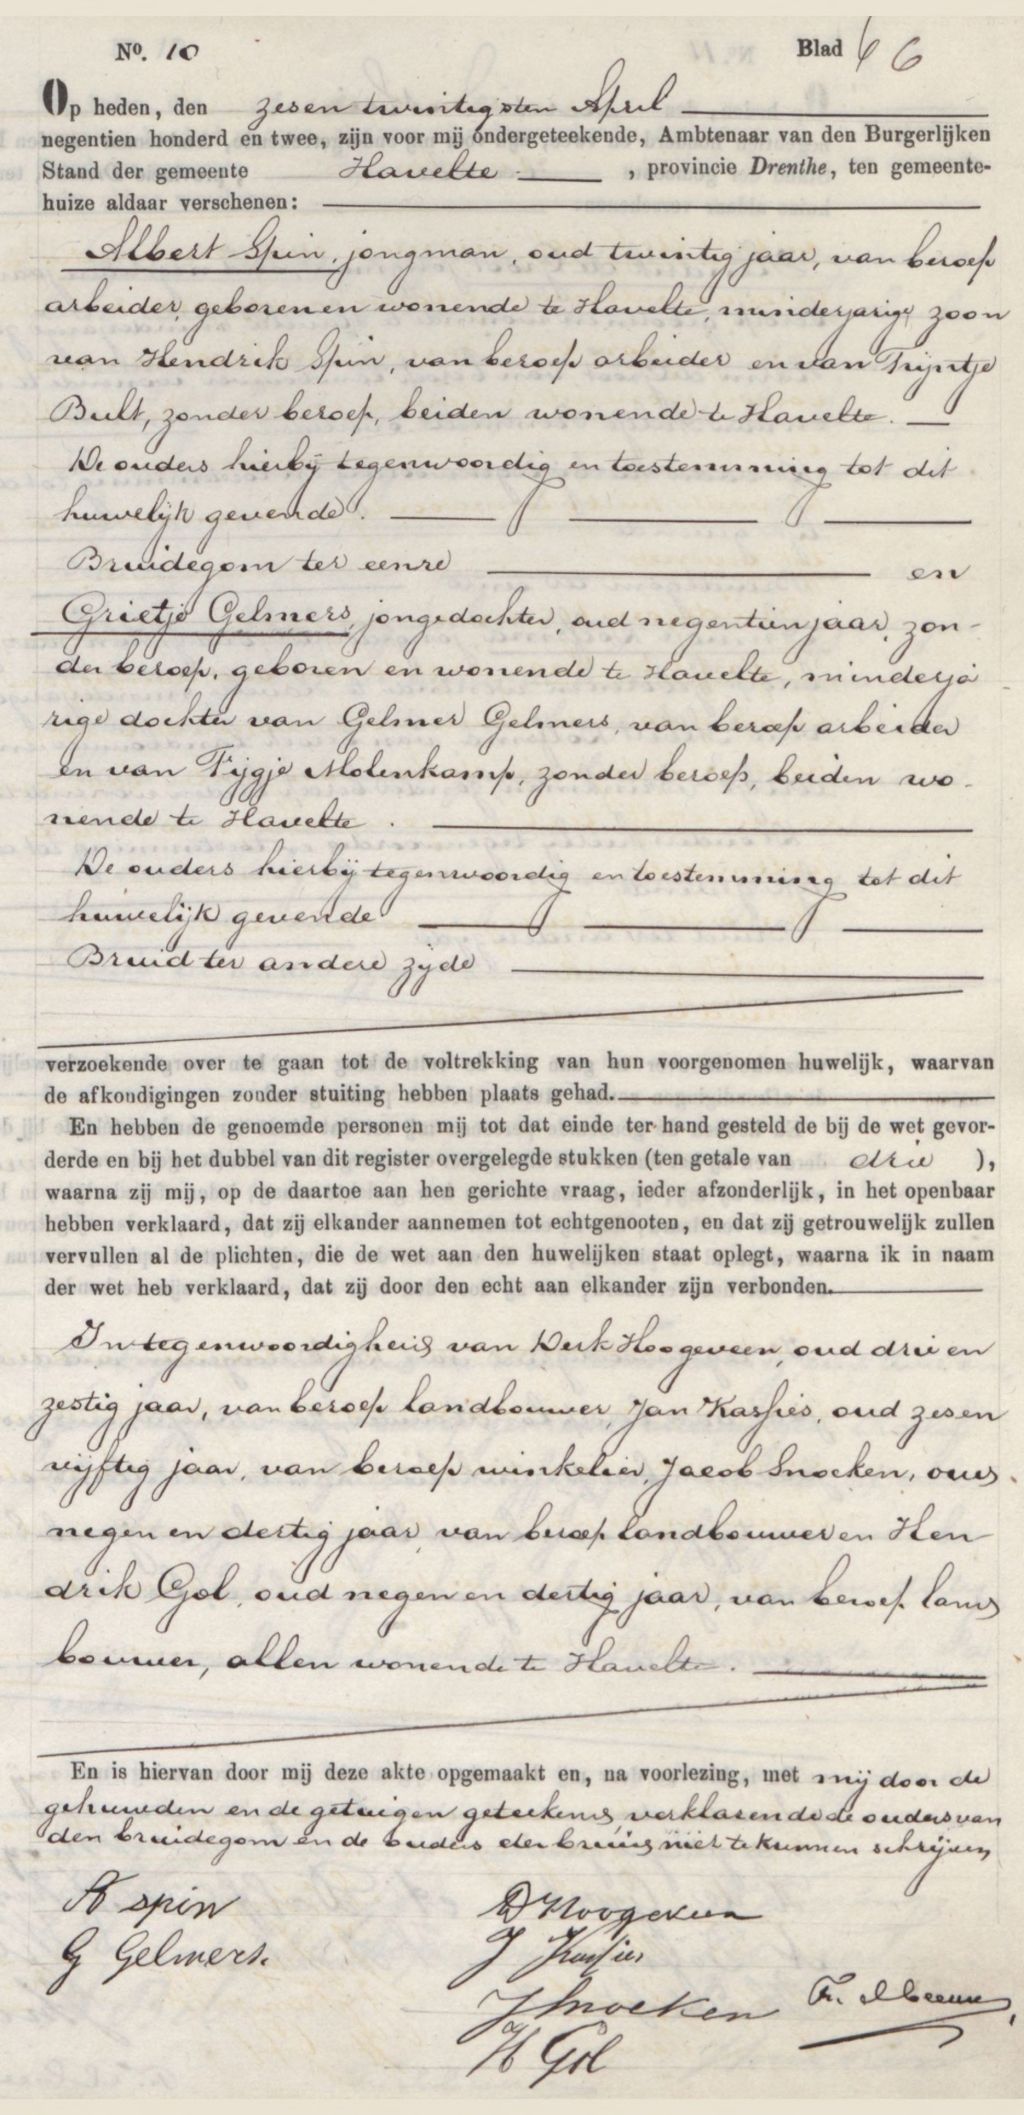 No. 10 Blad 6 6
Op heden, den zesen twintigsten April
negentien honderd en twee, zijn voor mij ondergeteekende, Ambtenaar van den Burgerlijken
Stand der gemeente Havelte, provincie Drenthe, ten gemeente-
huize aldaar verschenen:
Albert Spin, jongman, oud twintig jaar, van beroep
arbeider, geboren en wonende te Havelte, minderjarige zoon
van Hendrik Spin, van beroep arbeider en van Trijntje
Bult, zonder beroep, beiden wonende te Havelte.
De ouders hierbij tegenwoordig en toestemming tot dit
huwelijk gevende.
Bruidegom ter eenre en
Grietje Gelmers, jongedochter, oud negentien jaar, zon-
der beroep, geboren en wonende te Havelte, minderja
rige dochter van Gelmer Gelmers, van beroep arbeider
en van Fijgje Molenkamp, zonder beroep, beiden wo-
nende te Havelte.
De ouders hierbij tegenwoordig en toestemming tot dit
huwelijk gevende
Bruid ter andere zijde
verzoekende over te gaan tot de voltrekking van hun voorgenomen huwelijk, waarvan
de afkondigingen zonder stuiting hebben plaats gehad.
En hebben de genoemde personen mij tot dat einde ter hand gesteld de bij de wet gevor-
derde en bij het dubbel van dit register overgelegde stukken (ten getale van drie ),
waarna zij mij, op de daartoe aan hen gerichte vraag, ieder afzonderlijk, in het openbaar
hebben verklaard, dat zij elkander aannemen tot echtgenooten, en dat zij getrouwelijk zullen
vervullen al de plichten, die de wet aan den huwelijken staat oplegt, waarna ik in naam
der wet heb verklaard, dat zij door den echt aan elkander zijn verbonden.
In tegenwoordigheid van Derk Hoogeveen, oud drie en
zestig jaar, van beroep landbouwer, Jan Kaspies, oud zesen
vijftig jaar, van beroep winkelier, Jacob Snoeken, oud
negen en dertig jaar, van beroep landbouwer en Hen
drik Gol, oud negen en dertig jaar, van beroep land
bouwer, allen wonende te Havelte.
En is hiervan door mij deze akte opgemaakt en, na voorlezing, met mij door de
gehuwden en de getuigen geteekend, verklarende de ouders van
den bruidegom en de ouders der bruid niet te kunnen schrijven
A spin D Hoogeveen
G Gelmers. J Kaspies
J Snoeken
H Gol